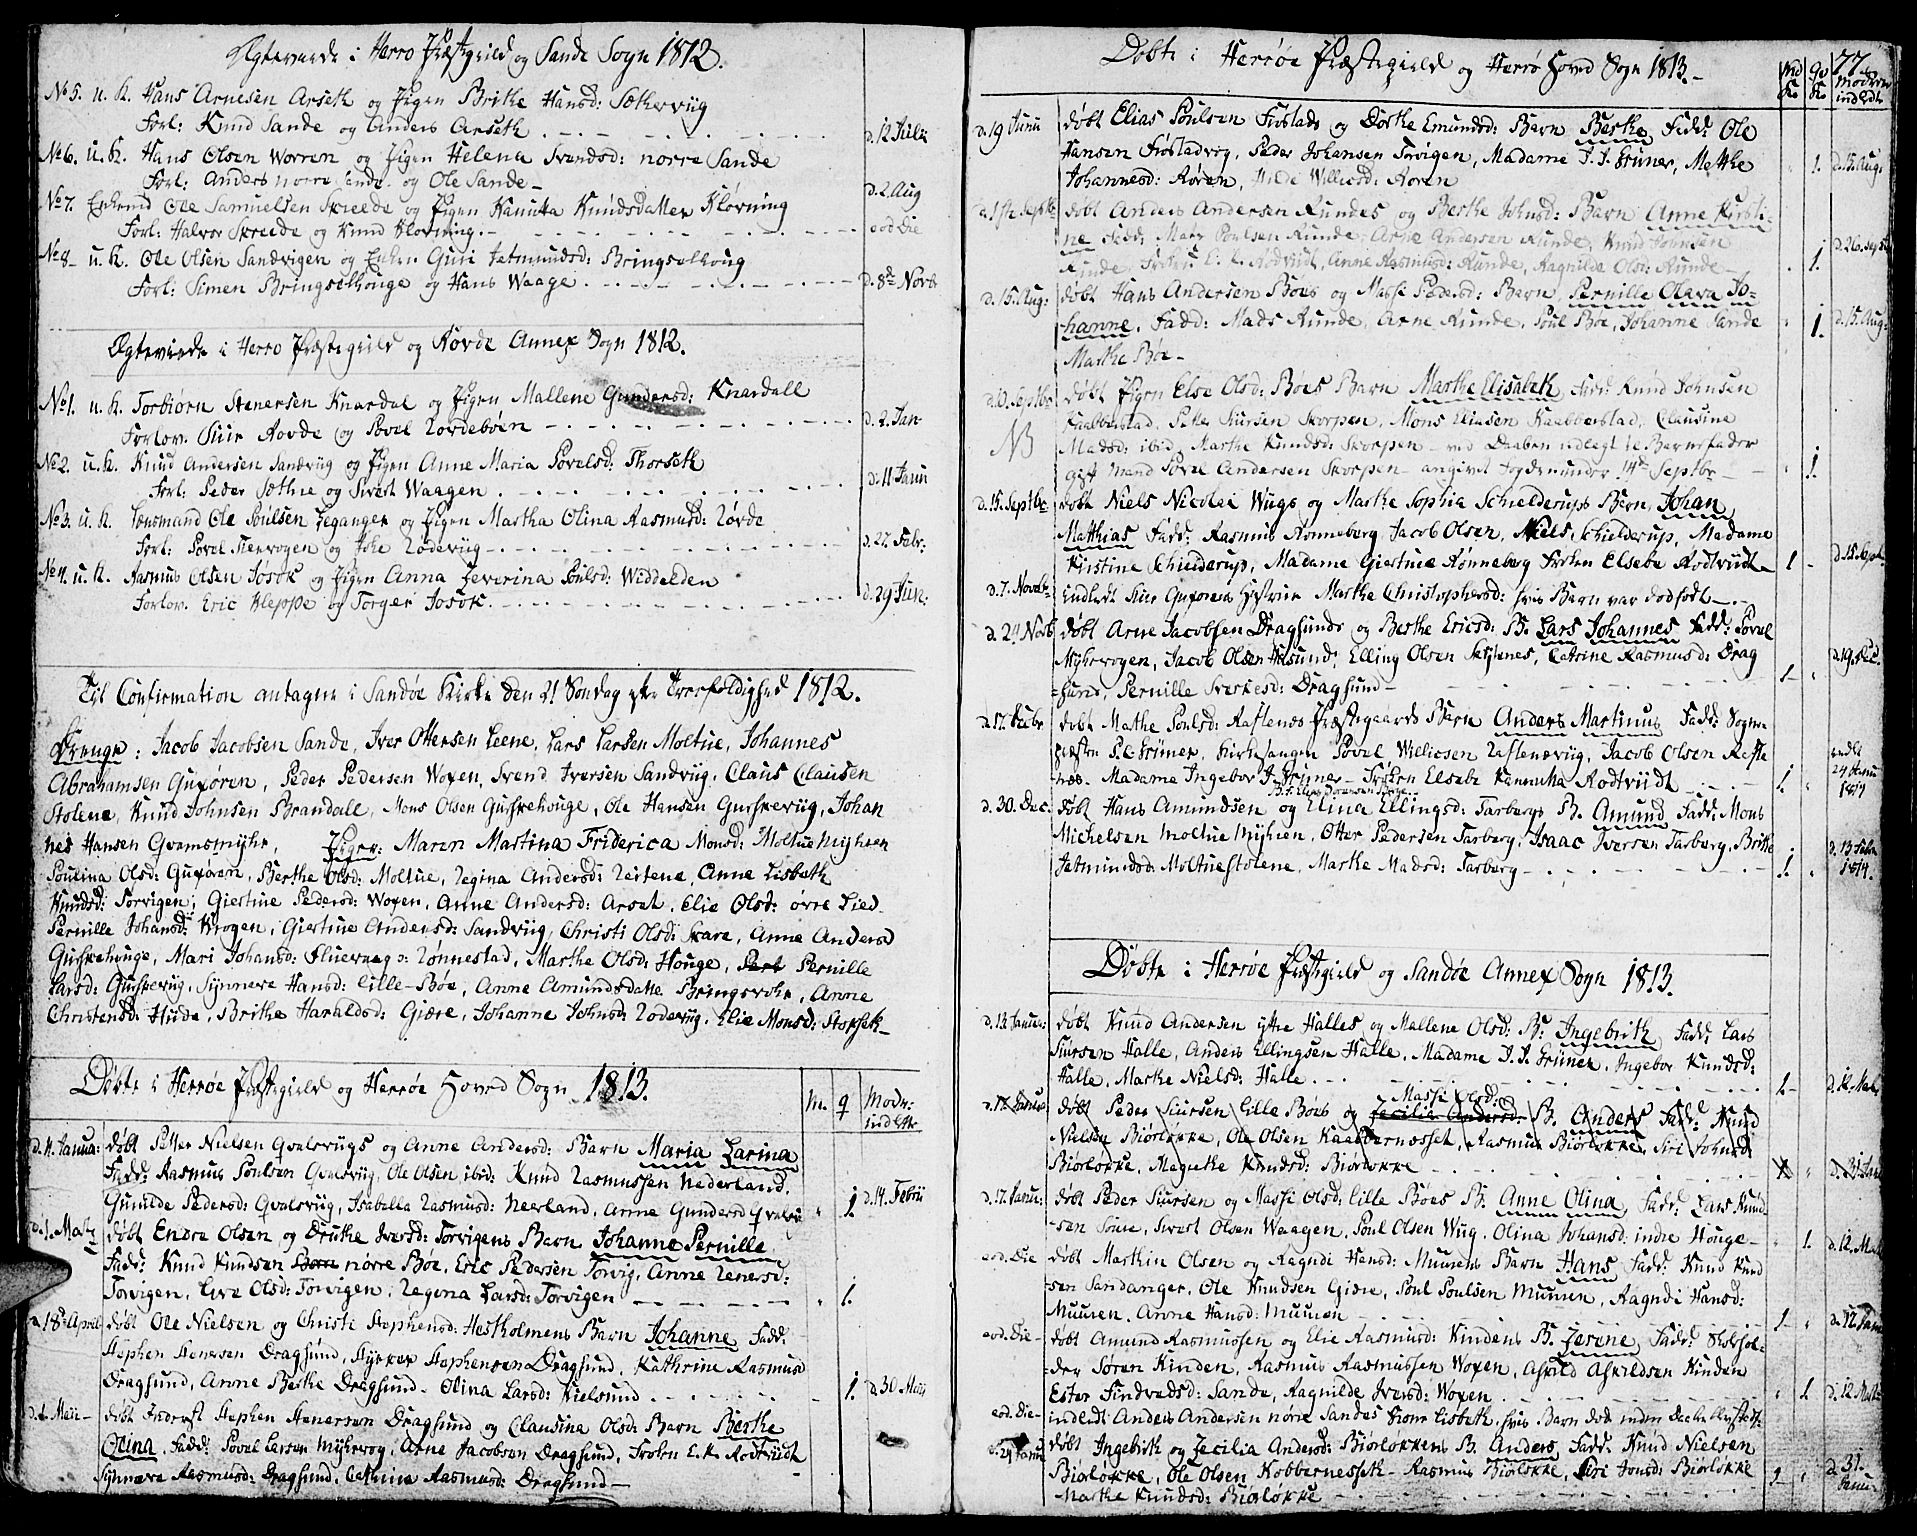 Ægteviede i Herrø Præstegield og Sande Sogn 1812.
No 5. u. K. Hans Arnesen Arseth og Pigen Brithe Hansd: Sætherviig
Forl: Knud Sande og Anders Arseth d. 12 Julii
No 6. u. K. Hans Olsen Worren og Pigen Helena Svendsd: nørre Sande
Forl: Anders nørre Sande og Ole Sande d. 2 Aug
No 7. Enkemd Ole Samuelsen Skreede og Pigen Kanutta Knudsdatter Kløvning
Forl: Halvor Skreede og Knud Kløvning eod Die
No 8 u. K. Ole Olsen Sandvigen og Enken Guri Jetmundsd: Bringselhoug
Forl: Simen Bringselhouge og Hans Waage d. 8de Novbr
Ægteviede i Herrø Præstegield og Rovde Annex Sogn 1812.
No 1. u. K. Torbiørn Stenersen Knardal og Pigen Mallene Gundersd: Knardall
Forlov. Siur Rovde og Povel Rovdebøen d. 2. Jan
No 2. u. K. Knud Andersen Sandviig og Pigen Anne Maria Povelsd: Thorseth
Forl: Peder Sæthre og Sivert Waagen d. 11 Janu
No 3. u. K. Lensmand Ole Poulsen og Pigen Martha Olina Rasmusd:
Forl: Povel Stenvogen og d. 27. Febr:
No 4. u. K. Rasmus Olsen Josok og Pigen Anna Severina Poulsd: Widdelden
Forlov. Eric Kleppe og Torger Josok d. 29 Jun:
Til Confirmation antagne i Sandøe Kirke den 21 Søndag efter Treefoldighed 1812.
Drenge: Jacob Jacobsen Sande, Iver Ottersen Leene, Lars Larsen Moltue, Johannes
Abrahamsen Gurøren, Peder Pedersen Woxen, Svend Iversen Sandviig, Claus Clausen
Stolene, Knud Johnsen Brandall, Mons Olsen Gurskehouge, Ole Hansen Gurskeviig, Johan
nes Hansen Qvamsmyhr, Piger: Maren Martina Friderica Monsd: Moltue Myhren
Poulina Olsd: Gurøren, Berthe Olsd: Moltue, Regina Andersd: Leitene, Anne Lisbeth
Knudsd: Torvigen, Giertine Pedersd: Woxen, Anne Andersd: Arset, Elie Olsd: øvre Lied
Pernille Johansd: Krogen, Giertrue Andersd: Sandviig, Christi Olsd: Skare, Anne Andersd
Gurskehouge, Mari Johansd: Rønnestad, Marthe Olsd: Houge, Pernille
Larsd: Gurskeviig, Synneve Hansd: Lille-Bøe, Anne Amundsdatter Bringsvohr, Anne
Christensd: Hide, Brithe Haraldsd: Giære, Johanne Johnsd: Elie Monsd:
Døbte i Herrøe Præstegield og Herrøe Hoved Sogn 1813. M. q Modr: indledte
d. 11. Janua: døbt Petter Nielsen Qvalsviigs og Anne Andersd: Barn Maria Larina
Fadd: Rasmus Poulsen Qvalsviig, Ole Olsen, ibid: Knud Rasmussen Nederland,
Gunilde Pedersd: Qvalsviig, Isabella Rasmusd: Neerland, Anne Gundersd Qvalsv: 1 d. 14. Febru
d. 1. Martz døbt Endre Olsen og Druthe Iversd: Torvigens Barn Johanne Pernille
Fadd: Knud Knudsen nørre Bøe, Eric Pedersen Torvig, Anne
Torvigen, Live Olsd: Torvigen, Regina Larsd: Torvigen 1.
d. 18de April døbt Ole Nielsen og Christi Stephensd: Hestholmens Barn Johanne Fadd:
Stephen Stenersen Dragsund, Styrker Stephensen Dragsund, Kathrine Rasmusd
Dragsund, Anne Berthe Dragsund. Olina Larsd: Kielsund 1. d. 30 Maii
d. 1 Maii døbt Inderst Stephen Stenersen Dragsund og Clausina Olsd: Barn Berthe
Olina, Fadd: Povel Larsen Myhrevog, Arne Jacobsen Dragsund, Frøken E. K. Rodtvidt
Synneve Rasmusd: Dragsund, Cathrine Rasmusd: Dragsund
Døbte i Herrøe Præstegield og Herrø Hoved Sogn 1813. Md Kn Qv Kn 77. Modren indledt
d. 19 Junii døbt Elias Poulsen Frøstads og Dorthe Emundsd: Barn Berthe Fadd: Ole
Hansen Frøstadvog, Peder Johansen Torvigen, Madame J. J. Grüner, Mette
Johannesd: Røren, Hilde Willicsd: Røren 1. d. 15. Aug:
døbt Anders Andersen Rundes og Berthe Johnsd: Barn Anne Kirsti-
ne Fadd: Mads Poulsen Runde, Arne Andersen Runde, Knud Johnsen
Runde, Frøken E. K. Rodtvidt, Anne Rasmusd: Runde, Ragnilde Olsd: Runde 1. d. 26 Sept
d. 15. Aug: døbt Hans Andersen Bøes og Massi Pedersd: Barn Pernille Olava Jo-
hanne, Fadd: Mads Runde, Arne Runde, Poul Bøe, Johanne Sande
Marthe Bøe 1. d. 15. Aug:
døbt Pigen Else Olsd: Bøes Barn Marthe Elisabeth, Fadd: Knud Johnsen
Kaabberstad, Petter Siursen Skorpen, Mons Eliasen Kaabberstad, Clausine
NB Madsd: ibid, Marthe Knudsd: Skorpen ved Daaben udlagt til Barnefader
Gift Mand Povel Andersen Skorpen angivet Fogden under 14de Septbr 1.
d. 15. Septbr døbt Niels Nicolai Wugs og Marthe Sophia Schielderups Barn Johan
Matthias Fadd: Rasmus Rønneberg, Jacob Olsen, Niels Schielderup, Madame
Kirstine Schielderup, Madame Giertrue Rønneberg Frøken Elsebe Rodtvidt 1 d. 15 Sept
d. 7. Novbr indledt Siur Gurørens Hustrue Marthe Christophersd: hvis Barn var dødfødt
d. 24 Novb døbt Arne Jacobsen Dragsunds og Berthe Ericsd: B: Lars Johannes Fadd: Povel
Myhrevogen, Jacob Olsen Kilsund, Elling Olsen Cathrine Rasmusd: Drag
sund, Pernille Dragsund 1 d. 19. Dec.
d. 17. Decbr døbt Mathe Poulsd: Raftenæs Præstegaards Barn Anders Martinus Fadd: Sogne
præsten P. C. Grüner, Kirkesanger Povel Willicsen Raftenæviig, Jacob Olsen Rafte
næs, Madame Ingebor J. Grüner Frøken Elsebe Kanutta Rodtvidt 1. indledt 24 Janu 1814
d. 30. Dec. døbt Hans Amundsen og Elina Ellingsd: Tarbergs B. Amund Fadd: Mons
Michelsen Moltue Myhren, Otter Pedersen Tarberg, Isaac Iversen Tarberg, Brithe
Jetmundsd: Moltuestolene, Marthe Madsd: Tarberg 1. d. 13 Febr 1814.
Døbte i Herrøe Præstegield og Sandøe Annex Sogn 1813.
døbt Knud Andersen ytre Halles og Mallene Olsd: B: Ingebrith, Fadd: Lars
Siursen Halle, Anders Ellingsen Halle, Madame J. J. Grüner, Ingebor Knudsd:
Halle, Marthe Nielsd: Halle 1 d. 12 Mart
d. 17. Janu: døbt Peder Siursen Lille Bøes og Massi Olsd: Cecilia Andersd: B: Anders Fadd: Knud
Nielsen Biørløkke, Ole Olsen Kaabbernesset, Rasmus Biørløkke, Siri Johnsd:
Biørløkke, Magrethe Knudsd: Biørløkke d. 31 Janu
d. 17. Janu: døbt Peder Siursen og Massi Olsd: Lille Bøes B: Anne Olina, Fadd: Lars Knud-
sen Sivert Olsen Waagen, Poul Olsen Wug, Olina Johansd: indre Houge 1. d. 12. Mart
eod. Die døbt Marthin Olsen og Ragndi Hansd: Muurens Barn Hans Fadd: Knud Knud
sen Sandanger, Ole Knudsen Giære, Poul Poulsen Muuren, Ragndi Hansd:
Muuren, Anne Hansd: Muuren 1 d. 12
eod. Die døbt Amund Rasmussen og Elie Rasmusd: Kindens B: Serine, Fadd: Skoehol-
der Søren Kinden, Rasmus Rasmussen Woxen, Askild Askildsen Kinden
Ester Findvedsd: Sande, Ragnilde Iversd: Woxen 1 d. 12 Mart
eod. Die indledt Anders Andersen nørre Sandes Kone Lisbeth, hvis Barn død inden
d. 24 Janu døbt Ingebrith og Zecilia Andersd: Biørløkkens B. Anders, Fadd: Knud Nielsen
Biørløkke, Ole Olsen Kobbernesseth Rasmus Biørløkke, Siri Jonsd: Biørløkke
Marthe Knudsd: Biørløkke 1 d. 31. Janu: